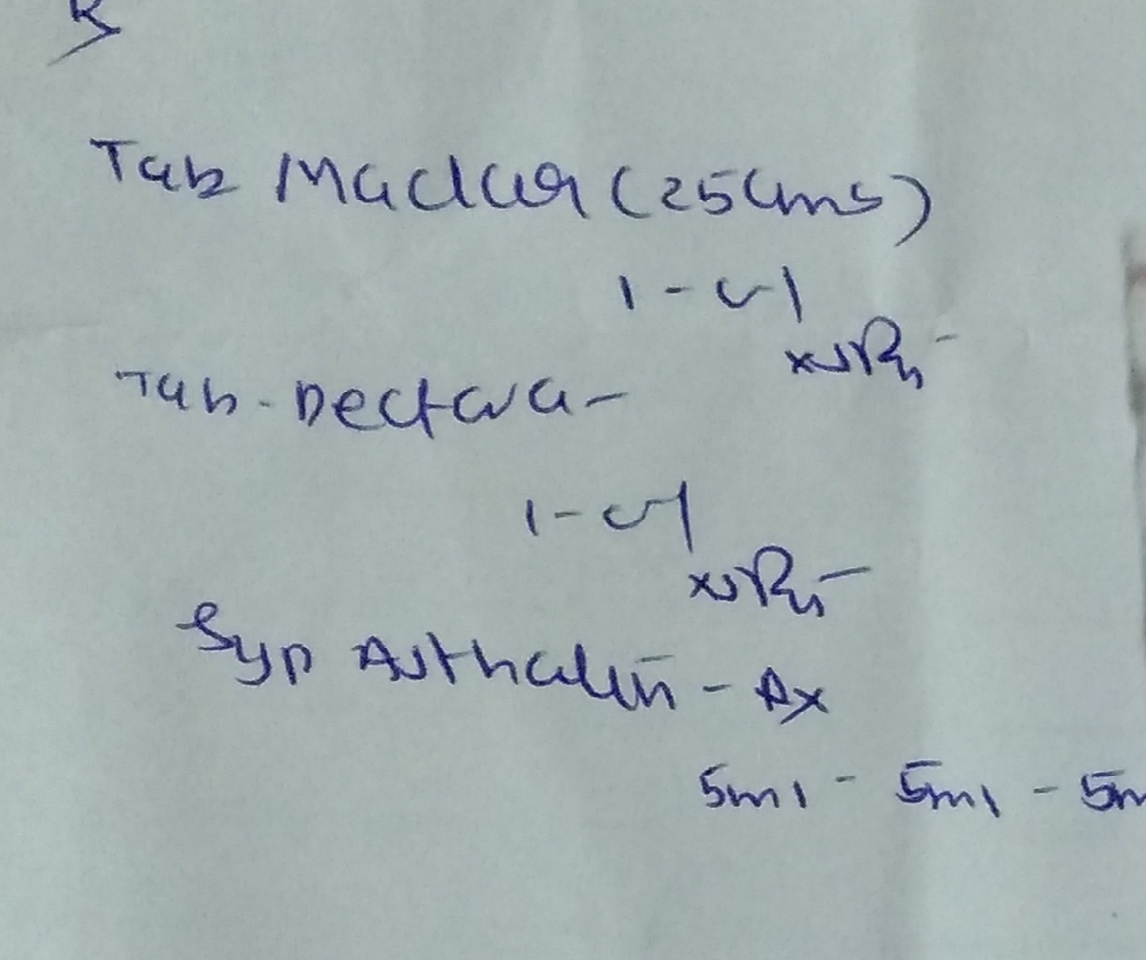 Tab Maclar (250mg)
1-0-1
Tab-Dectava-
1-0-1
Syp Asthalin - Ax
5ml - 5ml - 5m